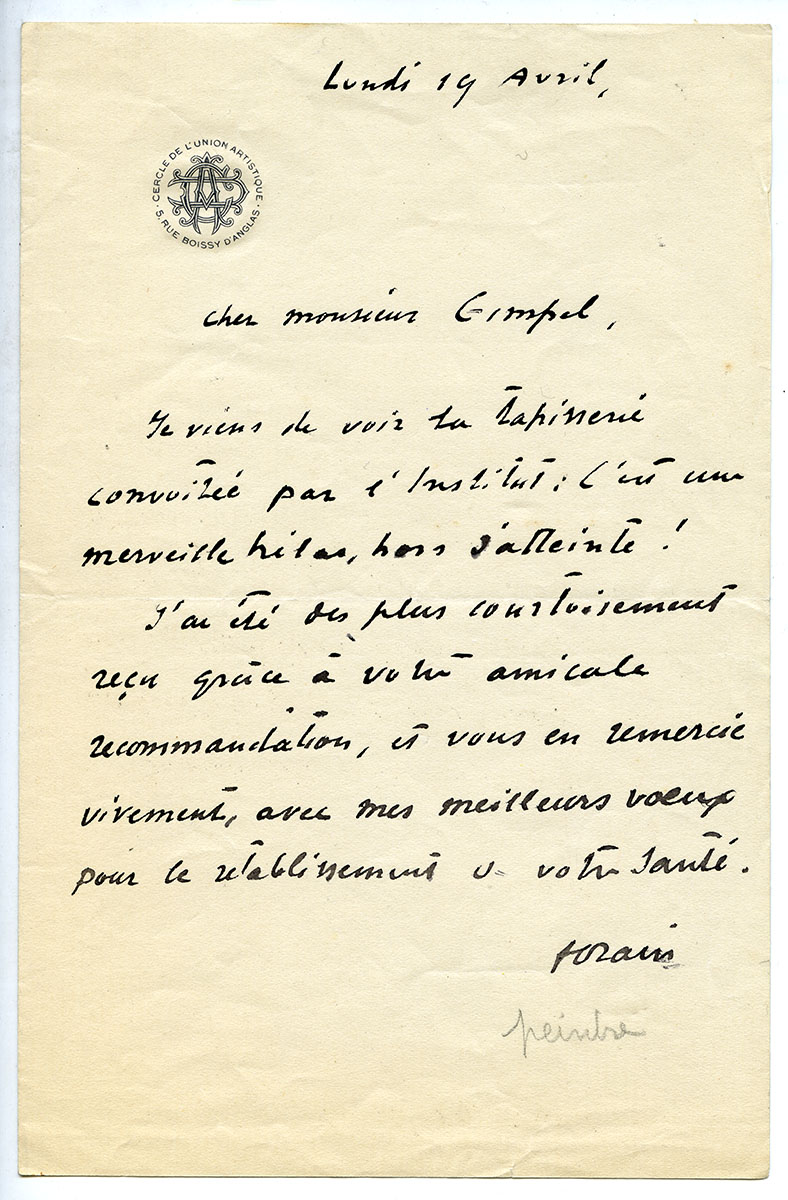 Lundi 19 Avril,
CERCLE DE L'UNION ARTISTIQUE
5, RUE BOISSY D'ANGLAS
cher monsieur Gimpel,
Je viens de voir la tapisserie
convoitée par l'Institut; C'est une
merveille hélas, hors d'atteinte !
J'ai été des plus courtoisement
reçu grâce à votre amicale
recommandation, et vous en remercie
vivement, avec mes meilleurs voeux
pour le rétablissement de votre santé.
forain
peintre